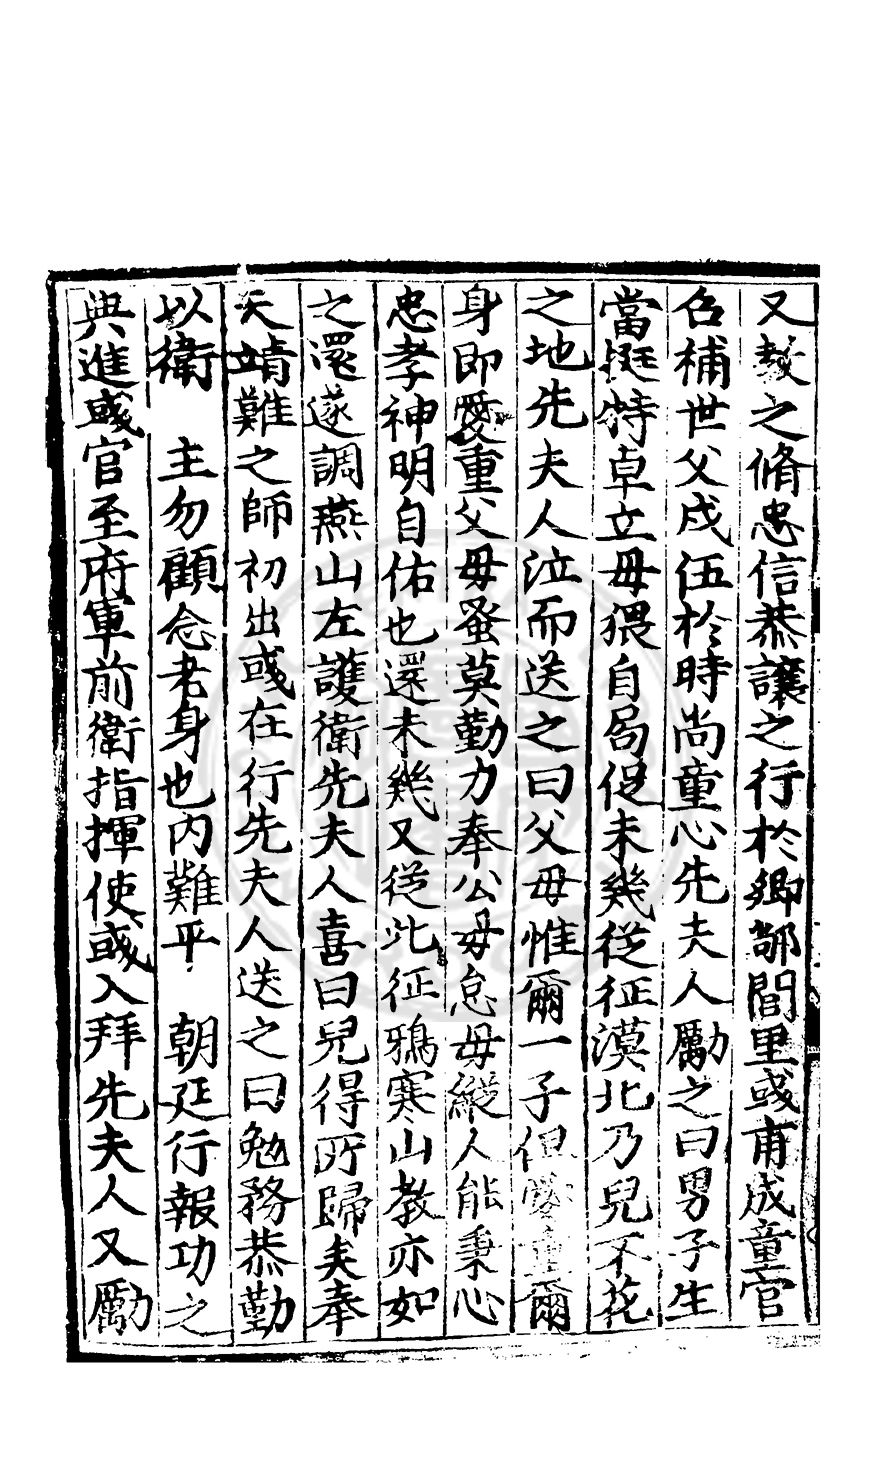 又教之脩忠信恭讓之行於鄉鄰閭里彧甫成童官
名補世父戍伍於時尚童心先夫人勵之曰男子生
當挺特卓立毋猥自局促未幾從征漠北乃兒不花
之地先夫人泣而送之曰父母惟爾一子但愛重爾
身即愛重父母蚤莫勤力奉公毋怠毋縱人能秉心
忠孝神明自佑也還未幾又從北征鴉寒山教亦如
之還遂調燕山左護衛先夫人喜曰兒得所歸矣奉
天靖難之師初出彧在行先夫人送之曰勉務恭勤
以衛　主勿顧念老身也内難平　朝廷行報功之
典進彧官至府軍前衛指揮使彧入拜先夫人又勵